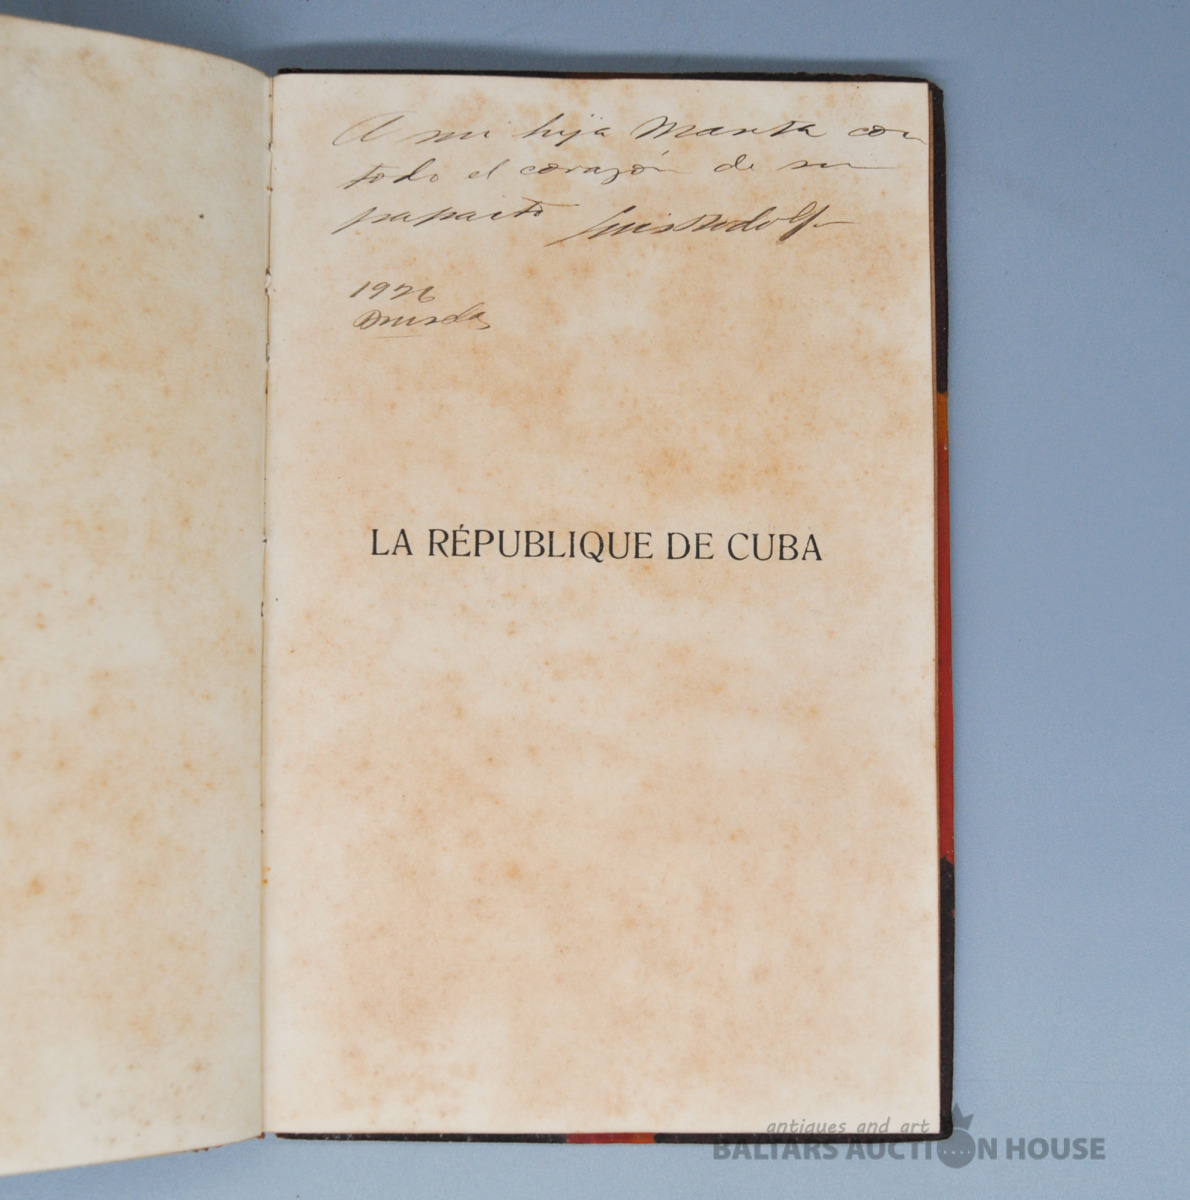 A mi hija Marta con
todo el corazón de su
papaito Luis Rodolfo
1926
LA RÉPUBLIQUE DE CUBA
antiques and art
BALTARS AUCTION HOUSE